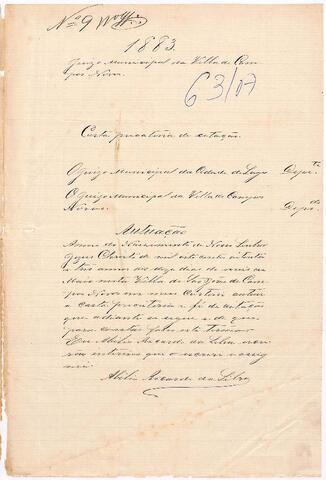 Nº 9
1883.
Juizo Municipal da Villa de Cam
pos Novos.
63/07
Carta precatoria de citação.
O Juizo Municipal da Cidade de Lages Depte
O Juizo Municipal da Villa de Campos
Novos Depdo
Autuação
Anno do Nascimento de Nosso Senhor
Jesus Christo de mil oito centos oitenta
e tres annos aos dias do mez de
Maio nesta Villa de São João de Cam
pos Novos em meu Cartorio autuei
a carta precatoria e fé de citação
que adiante se segue e de que
para constar fiz este termo
Eu Abilio Ricardo da Silva
escrivão que o escrevi e assig
nei.
Abilio Ricardo da Silva